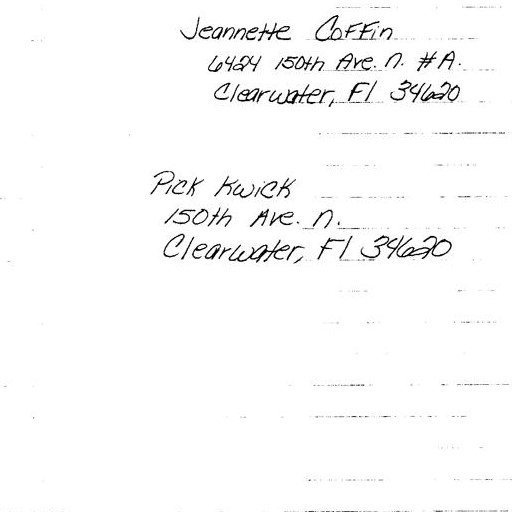 Jeannette Coffin
6424 150th Ave. N. #A.
Clearwater, Fl 34620
Pick Kwick
150th Ave. N.
Clearwater, Fl 34620